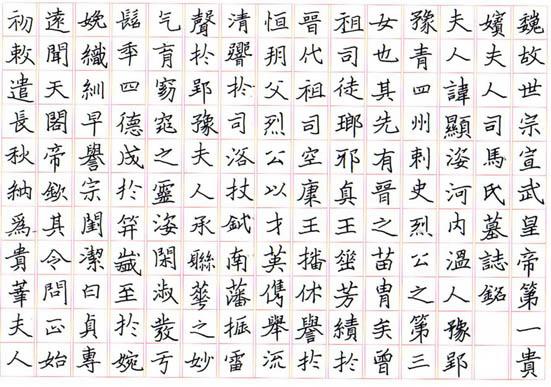 魏故世宗宣武皇帝第一貴
嬪夫人司馬氏墓誌銘
夫人諱顯姿河内溫人豫郢
豫青四州刺史烈公之第三
女也其先有晉之苗胄矣曾
祖司徒瑯邪真王垂芳績於
晉代祖司空康王播休譽於
恒朔父烈公以才英儁舉流
清響於司洛扙鉞南藩振雷
聲於郢豫夫人承聯華之妙
气育窈窕之靈姿閑淑發亏
髫秊四德成於笄歲至於婉
娩織紃早譽宗閨潔曰貞專
遠聞天閤帝欽其令問正始
初敕遣長秋納為貴華夫人